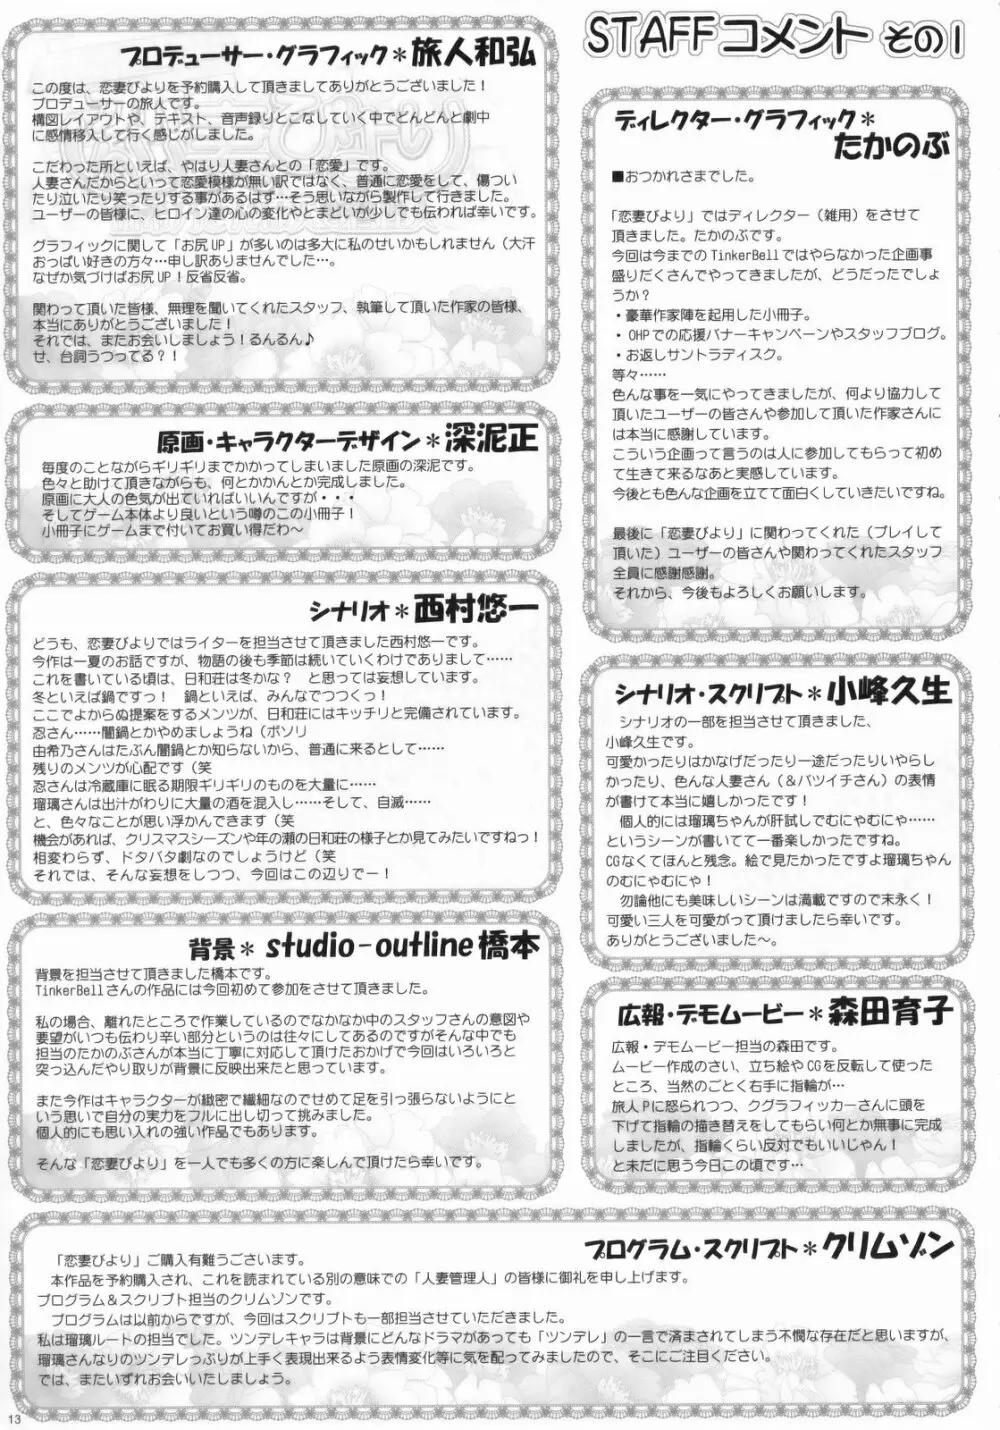 STAFFコメント その1
プロデューサー・グラフィック＊旅人和弘
この度は、恋妻びよりを予約購入して頂きましてありがとうございました！
プロデューサーの旅人です。
構図レイアウトや、テキスト、音声録りとこなしていく中でどんどんと劇中
に感情移入して行く感じがしました。
こだわった所といえば、やはり人妻さんとの「恋愛」です。
人妻さんだからといって恋愛模様が無い訳ではなく、普通に恋愛をして、傷つい
たり泣いたり笑ったりする事があるはず…そう思いながら製作して行きました。
ユーザーの皆様に、ヒロイン達の心の変化やとまどいが少しでも伝われば幸いです。
グラフィックに関して「お尻UP」が多いのは多大に私のせいかもしれません（大汗
おっぱい好きの方々…申し訳ありませんでした…。
なぜか気づけばお尻UP！反省反省。
関わって頂いた皆様、無理を聞いてくれたスタッフ、執筆して頂いた作家の皆様、
本当にありがとうございました！
それでは、またお会いしましょう！るんるん♪
せ、台詞うつってる？！
原画・キャラクターデザイン＊深泥正
毎度のことながらギリギリまでかかってしまいました原画の深泥です。
色々と助けて頂きながらも、何とかかんとか完成しました。
原画に大人の色気が出ていればいいんですが・・・
そしてゲーム本体より良いという噂のこの小冊子！
小冊子にゲームまで付いてお買い得だわ～
シナリオ＊西村悠一
どうも、恋妻びよりではライターを担当させて頂きました西村悠一です。
今作は一夏のお話ですが、物語の後も季節は続いていくわけでありまして……
これを書いている頃は、日和荘は冬かな？　と思っては妄想しています。
冬といえば鍋ですっ！　鍋といえば、みんなでつつくっ！
ここでよからぬ提案をするメンツが、日和荘にはキッチリと完備されています。
忍さん……闇鍋とかやめましょうね（ボソリ
由希乃さんはたぶん闇鍋とか知らないから、普通に来るとして……
残りのメンツが心配です（笑
忍さんは冷蔵庫に眠る期限ギリギリのものを大量に……
瑠璃さんは出汁がわりに大量の酒を混入し……そして、自滅…
と、色々なことが思い浮かんできます（笑
機会があれば、クリスマスシーズンや年の瀬の日和荘の様子とか見てみたいですねっ！
相変わらず、ドタバタ劇なのでしょうけど（笑
それでは、そんな妄想をしつつ、今回はこの辺りでー！
背景＊ studio-outline橋本
背景を担当させて頂きました橋本です。
TinkerBellさんの作品には今回初めて参加をさせて頂きました。
私の場合、離れたところで作業しているのでなかなか中のスタッフさんの意図や
要望がいつも伝わり辛い部分というのは往々にしてあるのですがそんな中でも
担当のたかのぶさんが本当に丁寧に対応して頂けたおかげで今回はいろいろと
突っ込んだやり取りが背景に反映出来たと思っています。
また今作はキャラクターが緻密で繊細なのでせめて足を引っ張らないようにと
いう思いで自分の実力をフルに出し切って挑みました。
個人的にも思い入れの強い作品でもあります。
そんな「恋妻びより」を一人でも多くの方に楽しんで頂けたら幸いです。
ディレクター・グラフィック＊
たかのぶ
■おつかれさまでした。
「恋妻びより」ではディレクター（雑用）をさせて
頂きました。たかのぶです。
今回は今までのTinkerBellではやらなかった企画事
盛りだくさんでやってきましたが、どうだったでしょ
うか？
・豪華作家陣を起用した小冊子。
・OHPでの応援バナーキャンペーンやスタッフブログ。
・お返しサントラディスク。
等々……
色んな事を一気にやってきましたが、何より協力して
頂いたユーザーの皆さんや参加して頂いた作家さんに
は本当に感謝しています。
こういう企画って言うのは人に参加してもらって初め
て生きて来るなあと実感しています。
今後とも色んな企画を立てて面白くしていきたいですね。
最後に「恋妻びより」に関わってくれた（プレイして
頂いた）ユーザーの皆さんや関わってくれたスタッフ
全員に感謝感謝。
それから、今後もよろしくお願いします。
シナリオ・スクリプト＊小峰久生
シナリオの一部を担当させて頂きました、
小峰久生です。
可愛かったりはかなげだったり一途だったりいやらし
かったり、色んな人妻さん（＆バツイチさん）の表情
が書けて本当に嬉しかったです！
個人的には瑠璃ちゃんが肝試しでむにゃむにゃ……
というシーンが書いてて一番楽しかったですね。
CGなくてほんと残念。絵で見たかったですよ瑠璃ちゃん
のむにゃむにゃ！
勿論他にも美味しいシーンは満載ですので末永く！
可愛い三人を可愛がって頂けましたら幸いです。
ありがとうございました～。
広報・デモムービー＊森田育子
広報・デモムービー担当の森田です。
ムービー作成のさい、立ち絵やCGを反転して使った
ところ、当然のごとく右手に指輪が…
旅人Pに怒られつつ、クグラフィッカーさんに頭を
下げて指輪の描き替えをしてもらい何とか無事に完成
しましたが、指輪くらい反対でもいいじゃん！
と未だに思う今日この頃です…
プログラム・スクリプト＊クリムゾン
「恋妻びより」ご購入有難うございます。
本作品を予約購入され、これを読まれている別の意味での「人妻管理人」の皆様に御礼を申し上げます。
プログラム＆スクリプト担当のクリムゾンです。
プログラムは以前からですが、今回はスクリプトも一部担当させていただきました。
私は瑠璃ルートの担当でした。ツンデレキャラは背景にどんなドラマがあっても「ツンデレ」の一言で済まされてしまう不憫な存在だと思いますが、
瑠璃さんなりのツンデレっぷりが上手く表現出来るよう表情変化等に気を配ってみましたので、そこにご注目ください。
では、またいずれお会いいたしましょう。
13